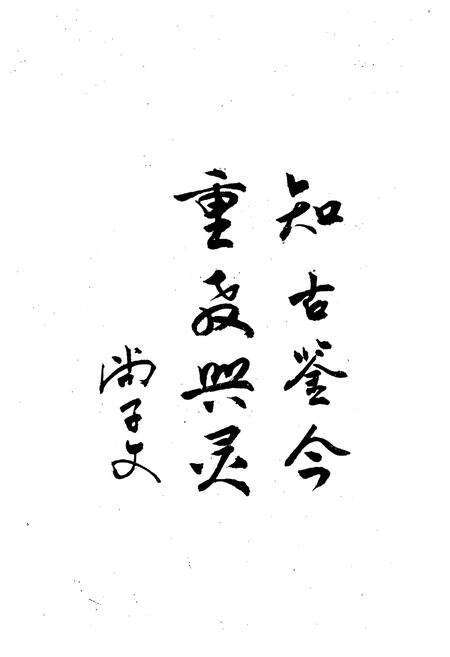 知古鉴今
重教興灵
尚子文